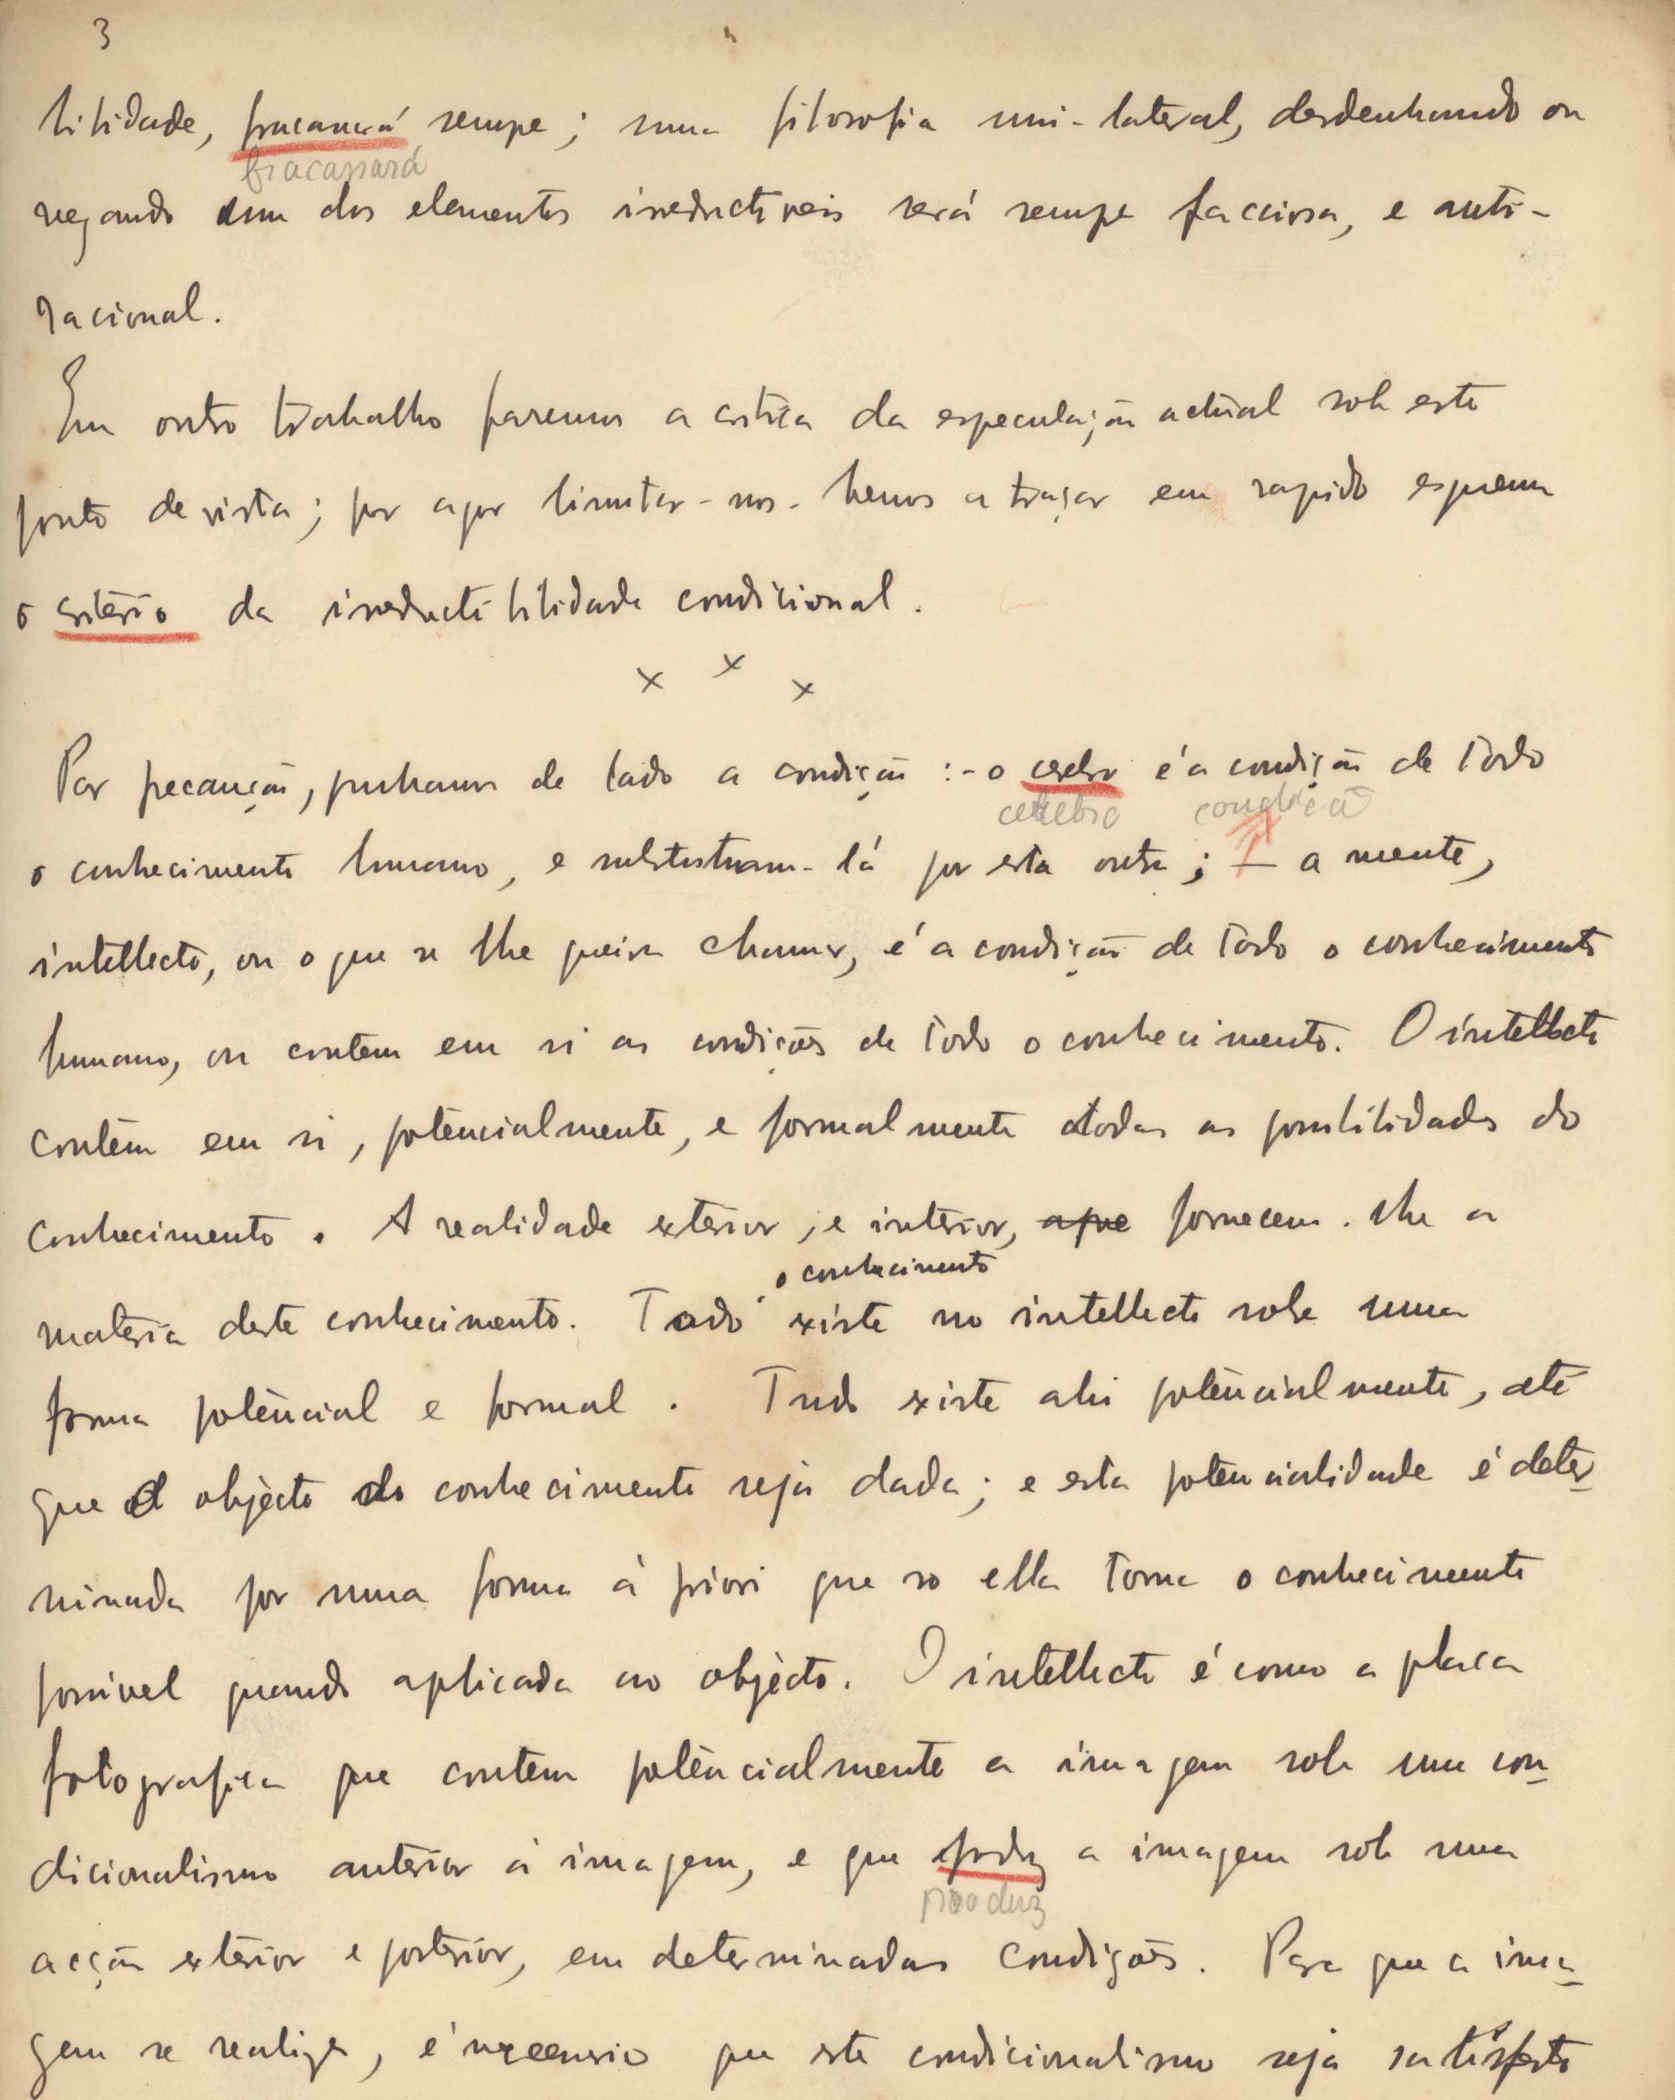 3
bilidade, fracassará sempre; uma filosofia uni-lateral, desdenhando ou
fracassará
negando um dos elementos irreductiveis será sempre facciosa, e anti-
racional.
Em outro trabalho faremos a critica da especulação actual sob este
ponto de vista; por agor limitar-nos-hemos a traçar em rapido esquema
o critério da irreductibilidade condicional.
x x x
Por precaução, punhamos de lado a condição :- o cerebro é a condição de todo
cérebro condição
o conhecimento humano, e substituam-lá por esta outra ; — a mente,
intellecto, ou o que se lhe queira chamar, é a condição de todo o conhecimento
humano, ou contem em si as condições de todo o conhecimento. O intellecto
contêm em si, potencialmente, e formalmente todas as possibilidades do
conhecimento. A realidade exterior, e interior, a que fornecem-lhe a
o conhecimento
matéria deste conhecimento. Todo existe no intellecto sobe uma
forma potêncial e formal. Tudo existe ahi potêncialmente, até
que o objècto do conhecimento seja dada; e esta potencialidade é deter-
minada por uma forma à priori que so ella torna o conhecimento
possivel quando aplicada ao objècto. O intellecto é como a placa
fotografica que contem potêncialmente a imagem sob um con-
dicionalismo anterior á imagem, e que produz a imagem sob uma
produz
acção exterior e posterior, em determinadas condições. Para que a ima-
gem se realize, é necessario que este condicionalismo seja satisfeito